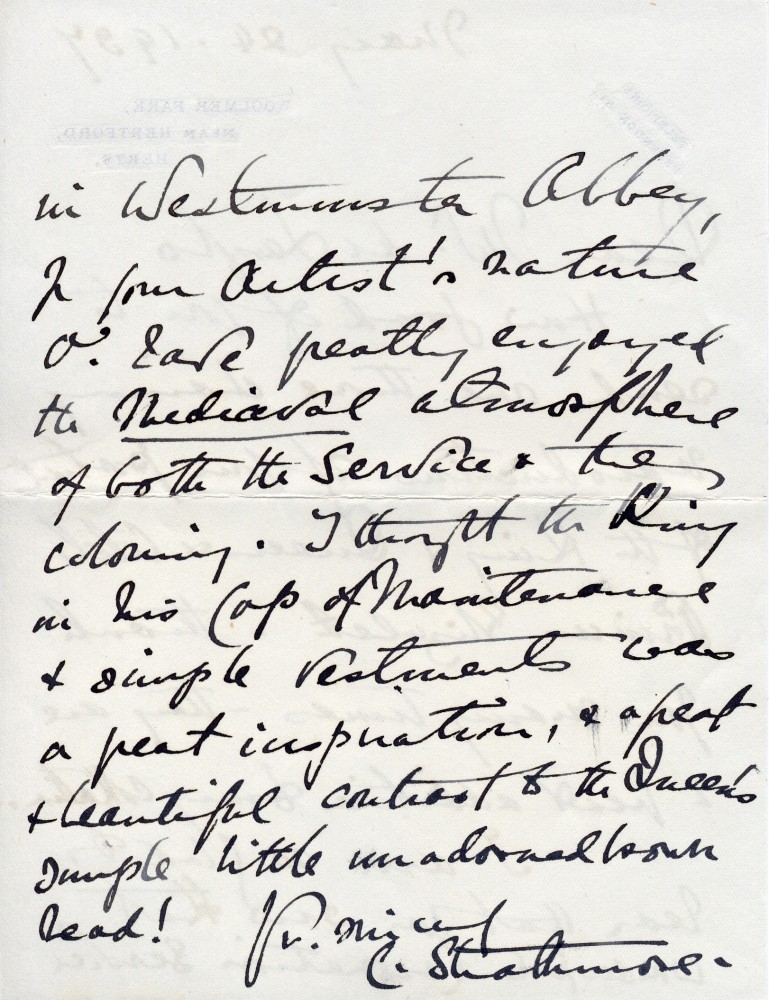 in Westminster Abbey,
If your Artist's nature
Wd. have greatly enjoyed
the Mediaeval atmosphere
of both the Service & the
colouring. I thought the King
in his Cap of Maintenance
& simple vestments was
a great inspiration, & a great
& beautiful contrast to the Queen's
simple little unadorned brown
head! Yr. sincerely
C. Strathmore.